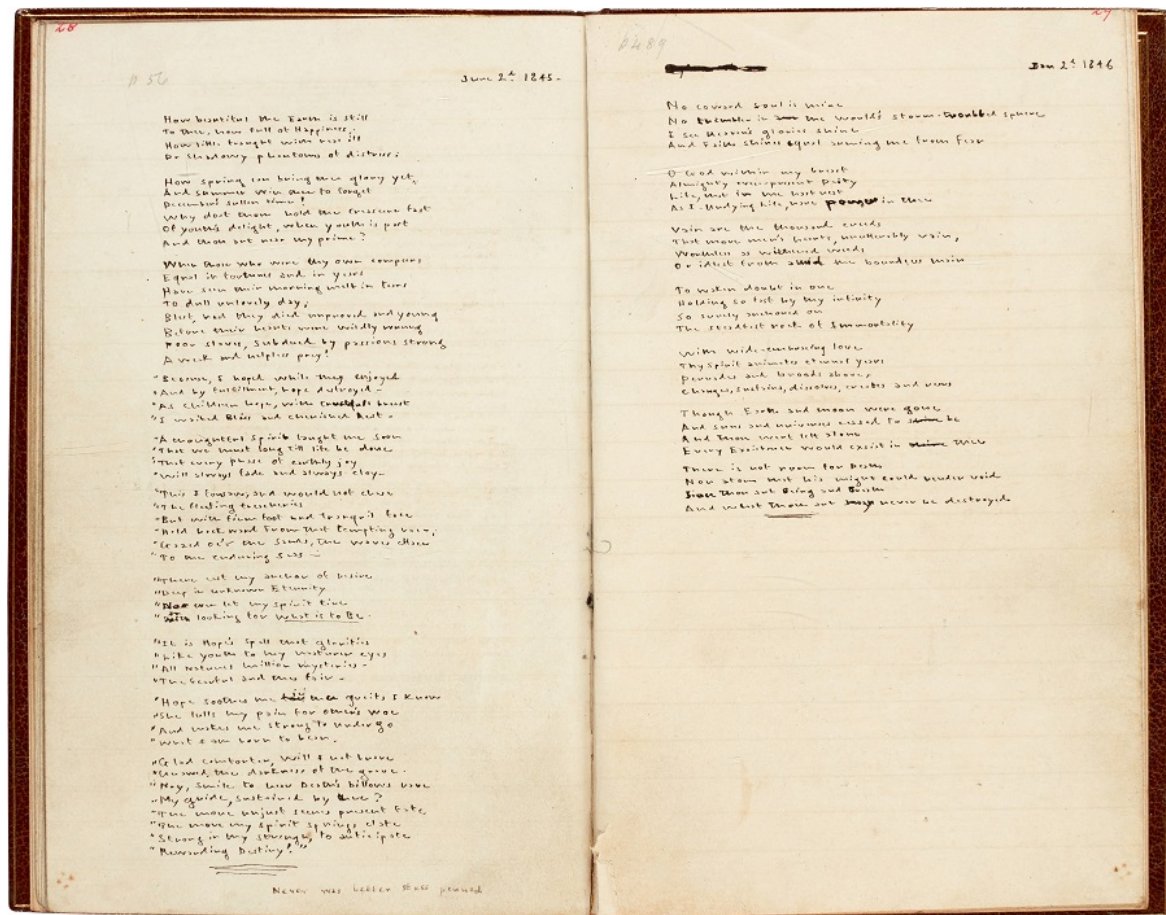 28
p 56
June 2d. 1845-
How beautiful the Earth is still
To thee, how full of Happiness;
How little fraught with real ill
Or shadowy phantoms of distress;
How spring can bring thee glory yet,
And summer win thee to forget
December's sullen time!
Why dost thou hold the treasure fast
Of youth's delight, when youth is past
And thou art near thy prime?
When those who were thy own compeers
Equal in fortunes and in years
Have seen their morning melt in tears
To dull unlovely day;
Blest, had they died unproved and young
Before their hearts were wildly wrung
Poor slaves, Subdued by passions strong
A weak and helpless prey!
"Because, I hoped while they enjoyed
"And by fulfilment, hope destroyed-
"As children hope, with trustful breast
"I waited Bliss and cherished Rest-
"A thoughtful Spirit taught me soon
"That we must long till life be done
"That every phase of earthly joy
"Will always fade and always cloy-
"This I foresaw, and would not chase
"The fleeting treacheries
"But with firm foot and tranquil face
"Held backward from that tempting race,
"Gazed o'er the Sands, the waves efface
"To the enduring seas-
"There cast my anchor of Desire
"Deep in unknown Eternity
"Nor ever let my Spirit tire
"With looking for What is to Be-
"It is Hope's Spell that glorifies
"Like youth to my maturer eyes
"All Nature's million mysteries-
"The fearful and the fair-
"Hope soothes me griefs I know
"She lulls my pain for other's woe
"And makes me strong to undergo
"What I am born to bear.
"Glad comforter, will I not brave
"Unawed the darkness of the grave.
"Nay, smile to hear Death's billows rave
"My guide, sustained by thee?
"The more unjust seems present fate
"The more my Spirit springs elate
"Strong in thy strength, to anticipate
"Rewarding Destiny!"
Never was better stuff penned
27
Jan 2d. 1846
No coward soul is mine
No trembler in the world's storm-troubled sphere
I see Heaven's glories shine
And Faith shines equal arming me from Fear
O God within my breast
Almighty ever-present Deity
Life, that in me hast rest
As I Undying Life, have power in thee
Vain are the thousand creeds
That move men's hearts, unutterably vain,
Worthless as withered weeds
Or idlest froth amid the boundless main
To waken doubt in one
Holding so fast by thy infinity
So surely anchored on
The steadfast rock of Immortality
With wide-embracing love
Thy Spirit animates eternal years
Pervades and broods above,
Changes, sustains, dissolves, creates and rears
Though Earth and moon were gone
And suns and universes ceased to be
And Thou wert left alone
Every Existence would exist in thee
There is not room for Death
Nor atom that his might could render void
Since Thou art Being and Breath
And what Thou art may never be destroyed